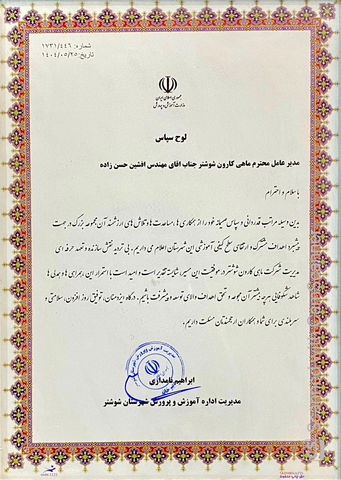 شماره: ۱۷۳۱/۴۴۶
تاریخ: ۱۴۰۴/۰۵/۲۵
جمهوری اسلامی ایران
وزارت آموزش و پرورش
لوح سپاس
مدیر عامل محترم ماهی کارون شوشتر جناب اقای مهندس افشین حسن زاده
با سلام و احترام
بدین وسیله مراتب قدردانی و سپاس صمیمانه خود را از همکاری ها، مساعدت ها و تلاش های ارزشمند آن مجموعه بزرگ در جهت
پیشبرد اهداف مشترک و ارتقای سطح کیفی آموزشی این شهرستان اعلام می داریم. بی تردید نقش سازنده و تعهد حرفه ای
مدیریت شرکت ماهی کارون شوشتر در موفقیت این مسیر، شایسته تقدیر است و امید است با استمرار این همراهی و همدلی ها
شاهد شکوفایی هرچه بیشتر آن مجموعه و تحقق اهداف والای توسعه و پیشرفت باشیم. از درگاه ایزدمنان، توفیق روز افزون، سلامتی و
سربلندی برای شما و همکاران ارجمندتان مسئلت داریم.
ابراهیم نامداری
مدیریت اداره آموزش و پرورش شهرستان شوشتر